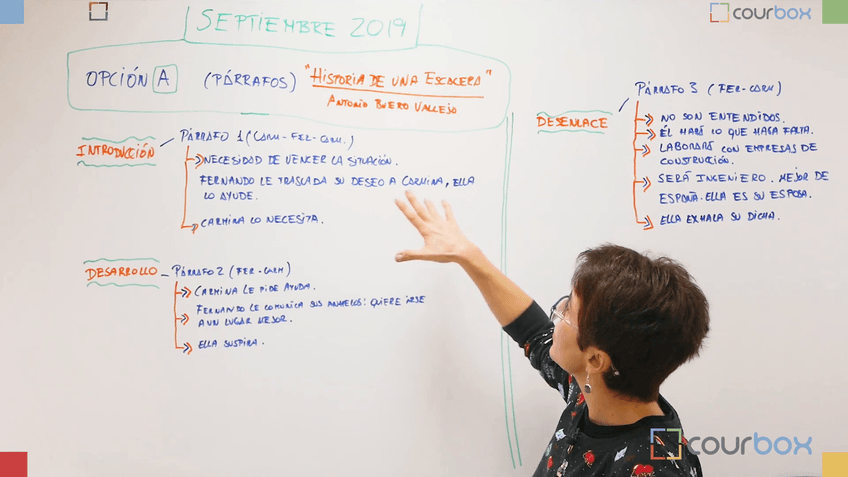 courbox
SEPTIEMBRE 2019
OPCIÓN A (PÁRRAFOS) "HISTORIA DE UNA ESCALERA"
ANTONIO BUERO VALLEJO
INTRODUCCIÓN
PÁRRAFO 1 (CARM-FER-CARM.)
NECESIDAD DE VENCER LA SITUACIÓN.
FERNANDO LE TRASLADA SU DESEO A CARMINA, ELLA
LO AYUDE.
CARMINA LO NECESITA.
DESARROLLO
PÁRRAFO 2 (FER-CARM)
CARMINA LE PIDE AYUDA.
FERNANDO LE COMUNICA SUS ANHELOS: QUIERE IRSE
A UN LUGAR MEJOR.
ELLA SUSPIRA.
DESENLACE
PÁRRAFO 3 (FER-CARM)
NO SON ENTENDIDOS.
ÉL HARÁ LO QUE HAGA FALTA.
LABORARÁ CON EMPRESAS DE
CONSTRUCCIÓN.
SERÁ INGENIERO. MEJOR DE
ESPAÑA. ELLA ES SU ESPOSA.
ELLA EXHALA SU DICHA.
courbox